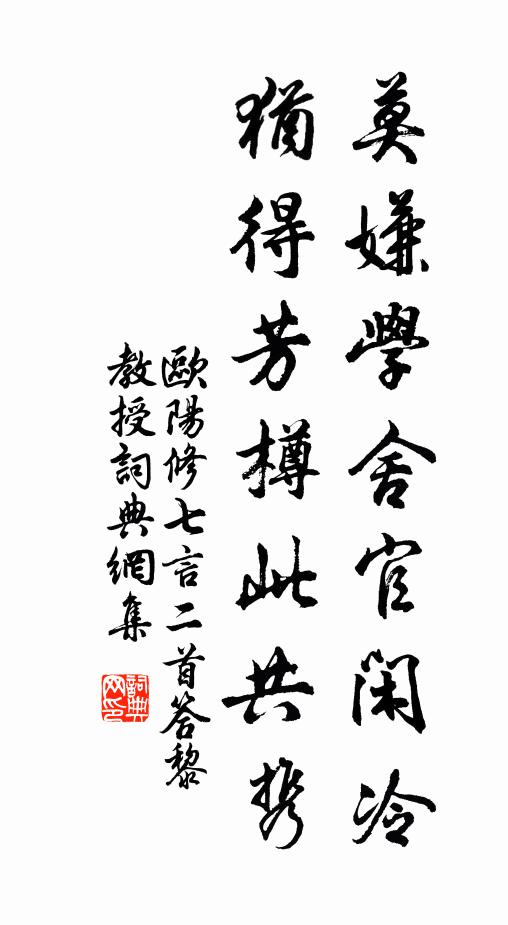 莫嫌學舍官閑冷
猶得芳樽此共携
歐陽修七言二首答黎
教授詞典網集
詞典網印